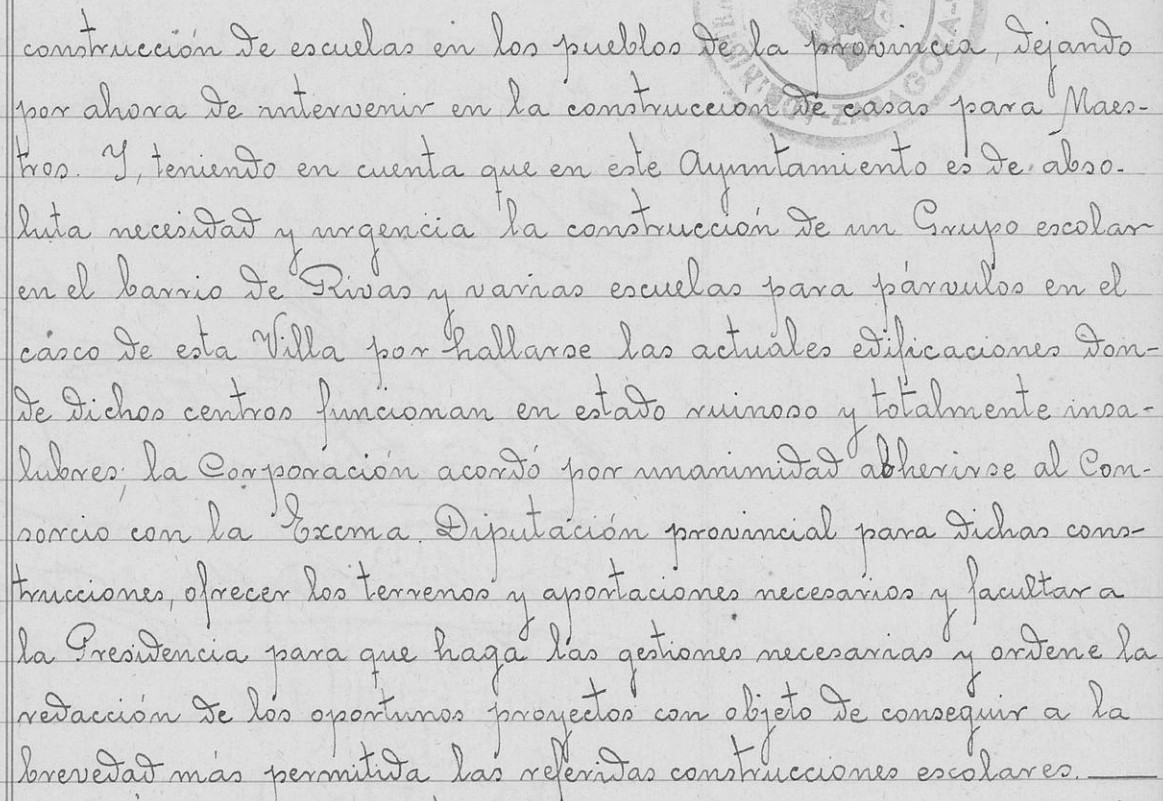 construcción de escuelas en los pueblos de la provincia, dejando
por ahora de intervenir en la construccion de casas para Maes-
tros. Y, teniendo en cuenta que en este Ayuntamiento es de abso-
luta necesidad y urgencia la construcción de un Grupo escolar
en el barrio de Rivas y varias escuelas para párvulos en el
casco de esta Villa por hallarse las actuales edificaciones don-
de dichos centros funcionan en estado ruinoso y totalmente insa-
lubres; la Corporación acordó por unanimidad adherirse al Con-
sorcio con la Excma. Diputación provincial para dichas cons-
trucciones, ofrecer los terrenos y aportaciones necesarios y facultar a
la Presidencia para que haga las gestiones necesarias y ordene la
redacción de los oportunos proyectos con objeto de conseguir a la
brevedad más permitida las referidas construcciones escolares.
ZARAGOZA